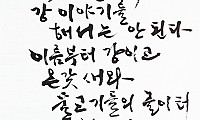 강 이야기를
해서는 안 된다
이름부터 강이고
온갖 새와
물고기들의 놀이터